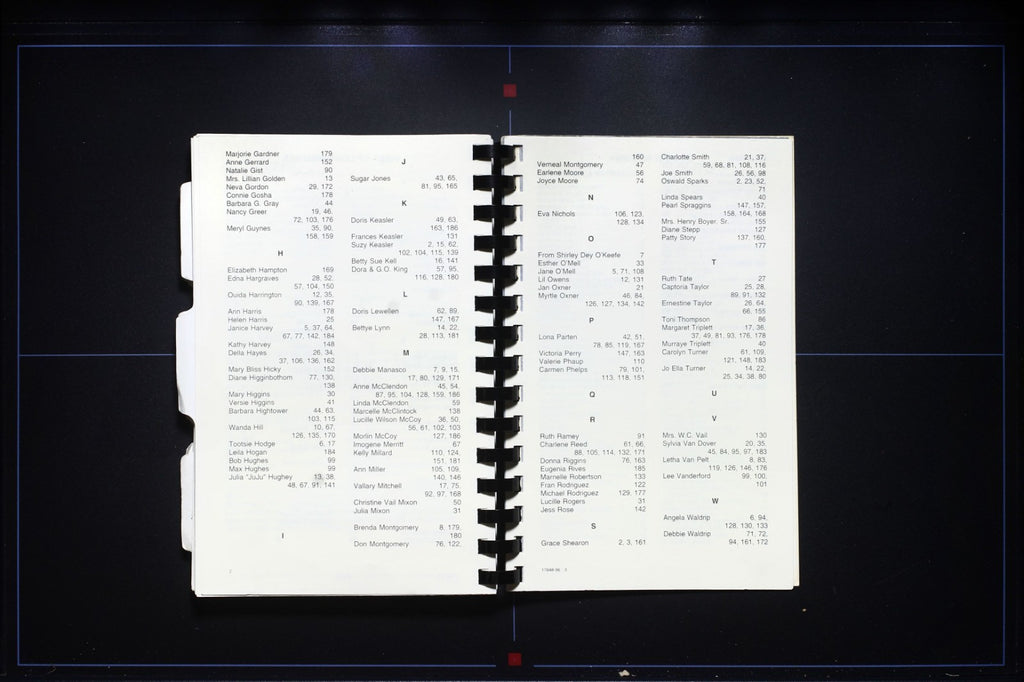 Marjorie Gardner 179
Anne Gerrard 152
Natalie Gist 90
Mrs. Lillian Golden 13
Neva Gordon 29, 172
Connie Gosha 178
Barbara G. Gray 44
Nancy Greer 19, 46,
72, 103, 176
Meryl Guynes 35, 90,
158, 159
H
Elizabeth Hampton 169
Edna Hargraves 28, 52,
57, 104, 150
Ouida Harrington 12, 35,
90, 139, 167
Ann Harris 178
Helen Harris 25
Janice Harvey 5, 37, 64,
67, 77, 142, 184
Kathy Harvey 148
Della Hayes 26, 34,
37, 106, 136, 162
Mary Bliss Hicky 152
Diane Higginbothom 77, 130,
138
Mary Higgins 30
Versie Higgins 41
Barbara Hightower 44, 63,
103, 115
Wanda Hill 10, 67,
126, 135, 170
Tootsie Hodge 6, 17
Leila Hogan 184
Bob Hughes 99
Max Hughes 99
Julia "JuJu" Hughey 13, 38,
48, 67, 91, 141
I
2
J
Sugar Jones 43, 65,
81, 95, 165
K
Doris Keasler 49, 63,
163, 186
Frances Keasler 131
Suzy Keasler 2, 15, 62,
102, 104, 115, 139
Betty Sue Kell 16, 141
Dora & G.O. King 57, 95,
116, 128, 180
L
Doris Lewellen 62, 89,
147, 167
Bettye Lynn 14, 22,
28, 113, 181
M
Debbie Manasco 7, 9, 15,
17, 80, 129, 171
Anne McClendon 45, 54,
87, 95, 104, 128, 159, 186
Linda McClendon 59
Marcelle McClintock 138
Lucille Wilson McCoy 36, 50,
56, 61, 102, 103
Morlin McCoy 127, 186
Imogene Merritt 67
Kelly Millard 110, 124,
151, 181
Ann Miller 105, 109,
140, 146
Vallary Mitchell 17, 75,
92, 97, 168
Christine Vail Mixon 50
Julia Mixon 31
Brenda Montgomery 8, 179,
180
Don Montgomery 76, 122,
160
Verneal Montgomery 47
Earlene Moore 56
Joyce Moore 74
N
Eva Nichols 106, 123,
128, 134
O
From Shirley Dey O'Keefe 7
Esther O'Mell 33
Jane O'Mell 5, 71, 108
Lil Owens 12, 131
Jan Oxner 21
Myrtle Oxner 46, 84,
126, 127, 134, 142
P
Lona Parten 42, 51,
78, 85, 119, 167
Victoria Perry 147, 163
Valerie Phaup 110
Carmen Phelps 79, 101,
113, 118, 151
Q
R
Ruth Ramey 91
Charlene Reed 61, 66,
88, 105, 114, 132, 171
Donna Riggins 76, 163
Eugenia Rives 185
Marnelle Robertson 133
Fran Rodriguez 122
Michael Rodriguez 129, 177
Lucille Rogers 31
Jess Rose 142
S
Grace Shearon 2, 3, 161
Charlotte Smith 21, 37,
59, 68, 81, 108, 116
Joe Smith 26, 56, 98
Oswald Sparks 2, 23, 52,
71
Linda Spears 40
Pearl Spraggins 147, 157,
158, 164, 168
Mrs. Henry Boyer, Sr. 155
Diane Stepp 127
Patty Story 137, 160,
177
T
Ruth Tate 27
Captoria Taylor 25, 28,
89, 91, 132
Ernestine Taylor 26, 64,
66, 155
Toni Thompson 86
Margaret Triplett 17, 36,
37, 49, 81, 93, 176, 178
Murraye Triplett 40
Carolyn Turner 61, 109,
121, 148, 183
Jo Ella Turner 14, 22,
25, 34, 38, 80
U
V
Mrs. W.C. Vail 130
Sylvia Van Dover 20, 35,
45, 84, 95, 97, 183
Letha Van Pelt 8, 83,
119, 126, 146, 176
Lee Vanderford 99, 100,
101
W
Angela Waldrip 6, 94,
128, 130, 133
Debbie Waldrip 71, 72,
94, 161, 172